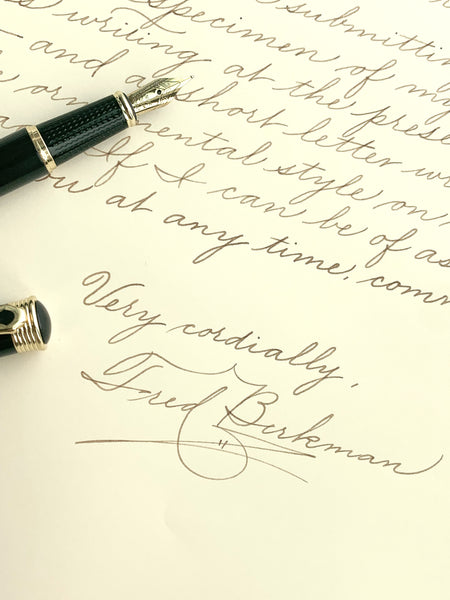 submittin
specimen of my
s writing at the prese
and a short letter wr
ornamental style on
If I can be of as
at any time, comm
Very cordially,
Fred Berkman